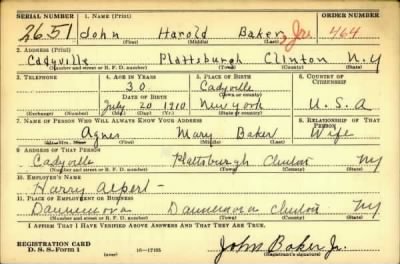 SERIAL NUMBER 1. NAME (Print) ORDER NUMBER
2651 John Harold Baker Jr. 464
(First) (Middle) (Last)
2. ADDRESS (Print)
Cadyville Plattsburgh Clinton N.Y
(Number and street or R. F. D. number) (Town) (County) (State)
3. TELEPHONE 4. AGE IN YEARS 5. PLACE OF BIRTH 6. COUNTRY OF CITIZENSHIP
30 Cadyville
DATE OF BIRTH (Town or county)
July 20 1910 New york U.S.A
(Exchange) (Number) (Mo.) (Day) (Yr.) (State or country)
7. NAME OF PERSON WHO WILL ALWAYS KNOW YOUR ADDRESS 8. RELATIONSHIP OF THAT PERSON
Agnes Mary Baker Wife
(Mr., Mrs., Miss) (First) (Middle) (Last)
9. ADDRESS OF THAT PERSON
Cadyville Plattsburgh Clinton NY
(Number and street or R. F. D. number) (Town) (County) (State)
10. EMPLOYER'S NAME
Harry Alpert -
11. PLACE OF EMPLOYMENT OR BUSINESS
Dannemora Dannemora Clinton NY
(Number and street or R. F. D. number) (Town) (County) (State)
I AFFIRM THAT I HAVE VERIFIED ABOVE ANSWERS AND THAT THEY ARE TRUE.
REGISTRATION CARD
D. S. S. Form 1 (over) 16—17105 John Baker Jr.
(Registrant's signature)